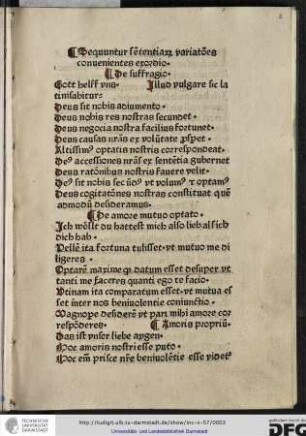 ¶ Sequuntur sētentiaꝝ variatões
conuenientes exordio.
¶ De suffragio.
Gott helff vns. Illud vulgare sic la
tinisabitur.
Deus sit nobis adiumento.
Deus nobis res nostras secundet.
Deus negocia nostra facilius fortunet.
Deus causas nrās ex volūtate ꝓspet.
Altissimꝰ optatis nostris correspondeat.
Deꝰ accessiones nrās ex sētētia gubernet
Deus ratōnibus nostris fauere velit.
Deꝰ sit nobis sec ūdꝰ vt volumꝰ ⁊ optamꝰ
Deus cogitatōnes nostras constituat quē
admodū desideramus.
¶ De amore mutuo optato.
Ich wōlt du hattest mich also lieb als ich
dich hab.
Pellē ita fortuna tulisset. vt mutuo me di
ligeres.
Optarē maxime ꝙ datum esset desuper vt
tanti me faceres quanti ego te facio.
Utinam ita comparatum esset. vt mutua es
set inter nos beniuolentie coniunctio.
Magnopere desiderē vt pari mihi amore cor
respōderes. ¶ Amoris propriū.
Das ist vnser liebe aygen.
Hoc amoris nostri esse puto.
Hoc em̄ prisce nr̄e beniuolētie esse videt
TECHNISCHE
UNIVERSITÄT
DARMSTADT
http://tudigit.ulb.tu-darmstadt.de/show/inc-ii-57/0003
Universitäts- und Landesbibliothek Darmstadt
gefördert durch die
DFG